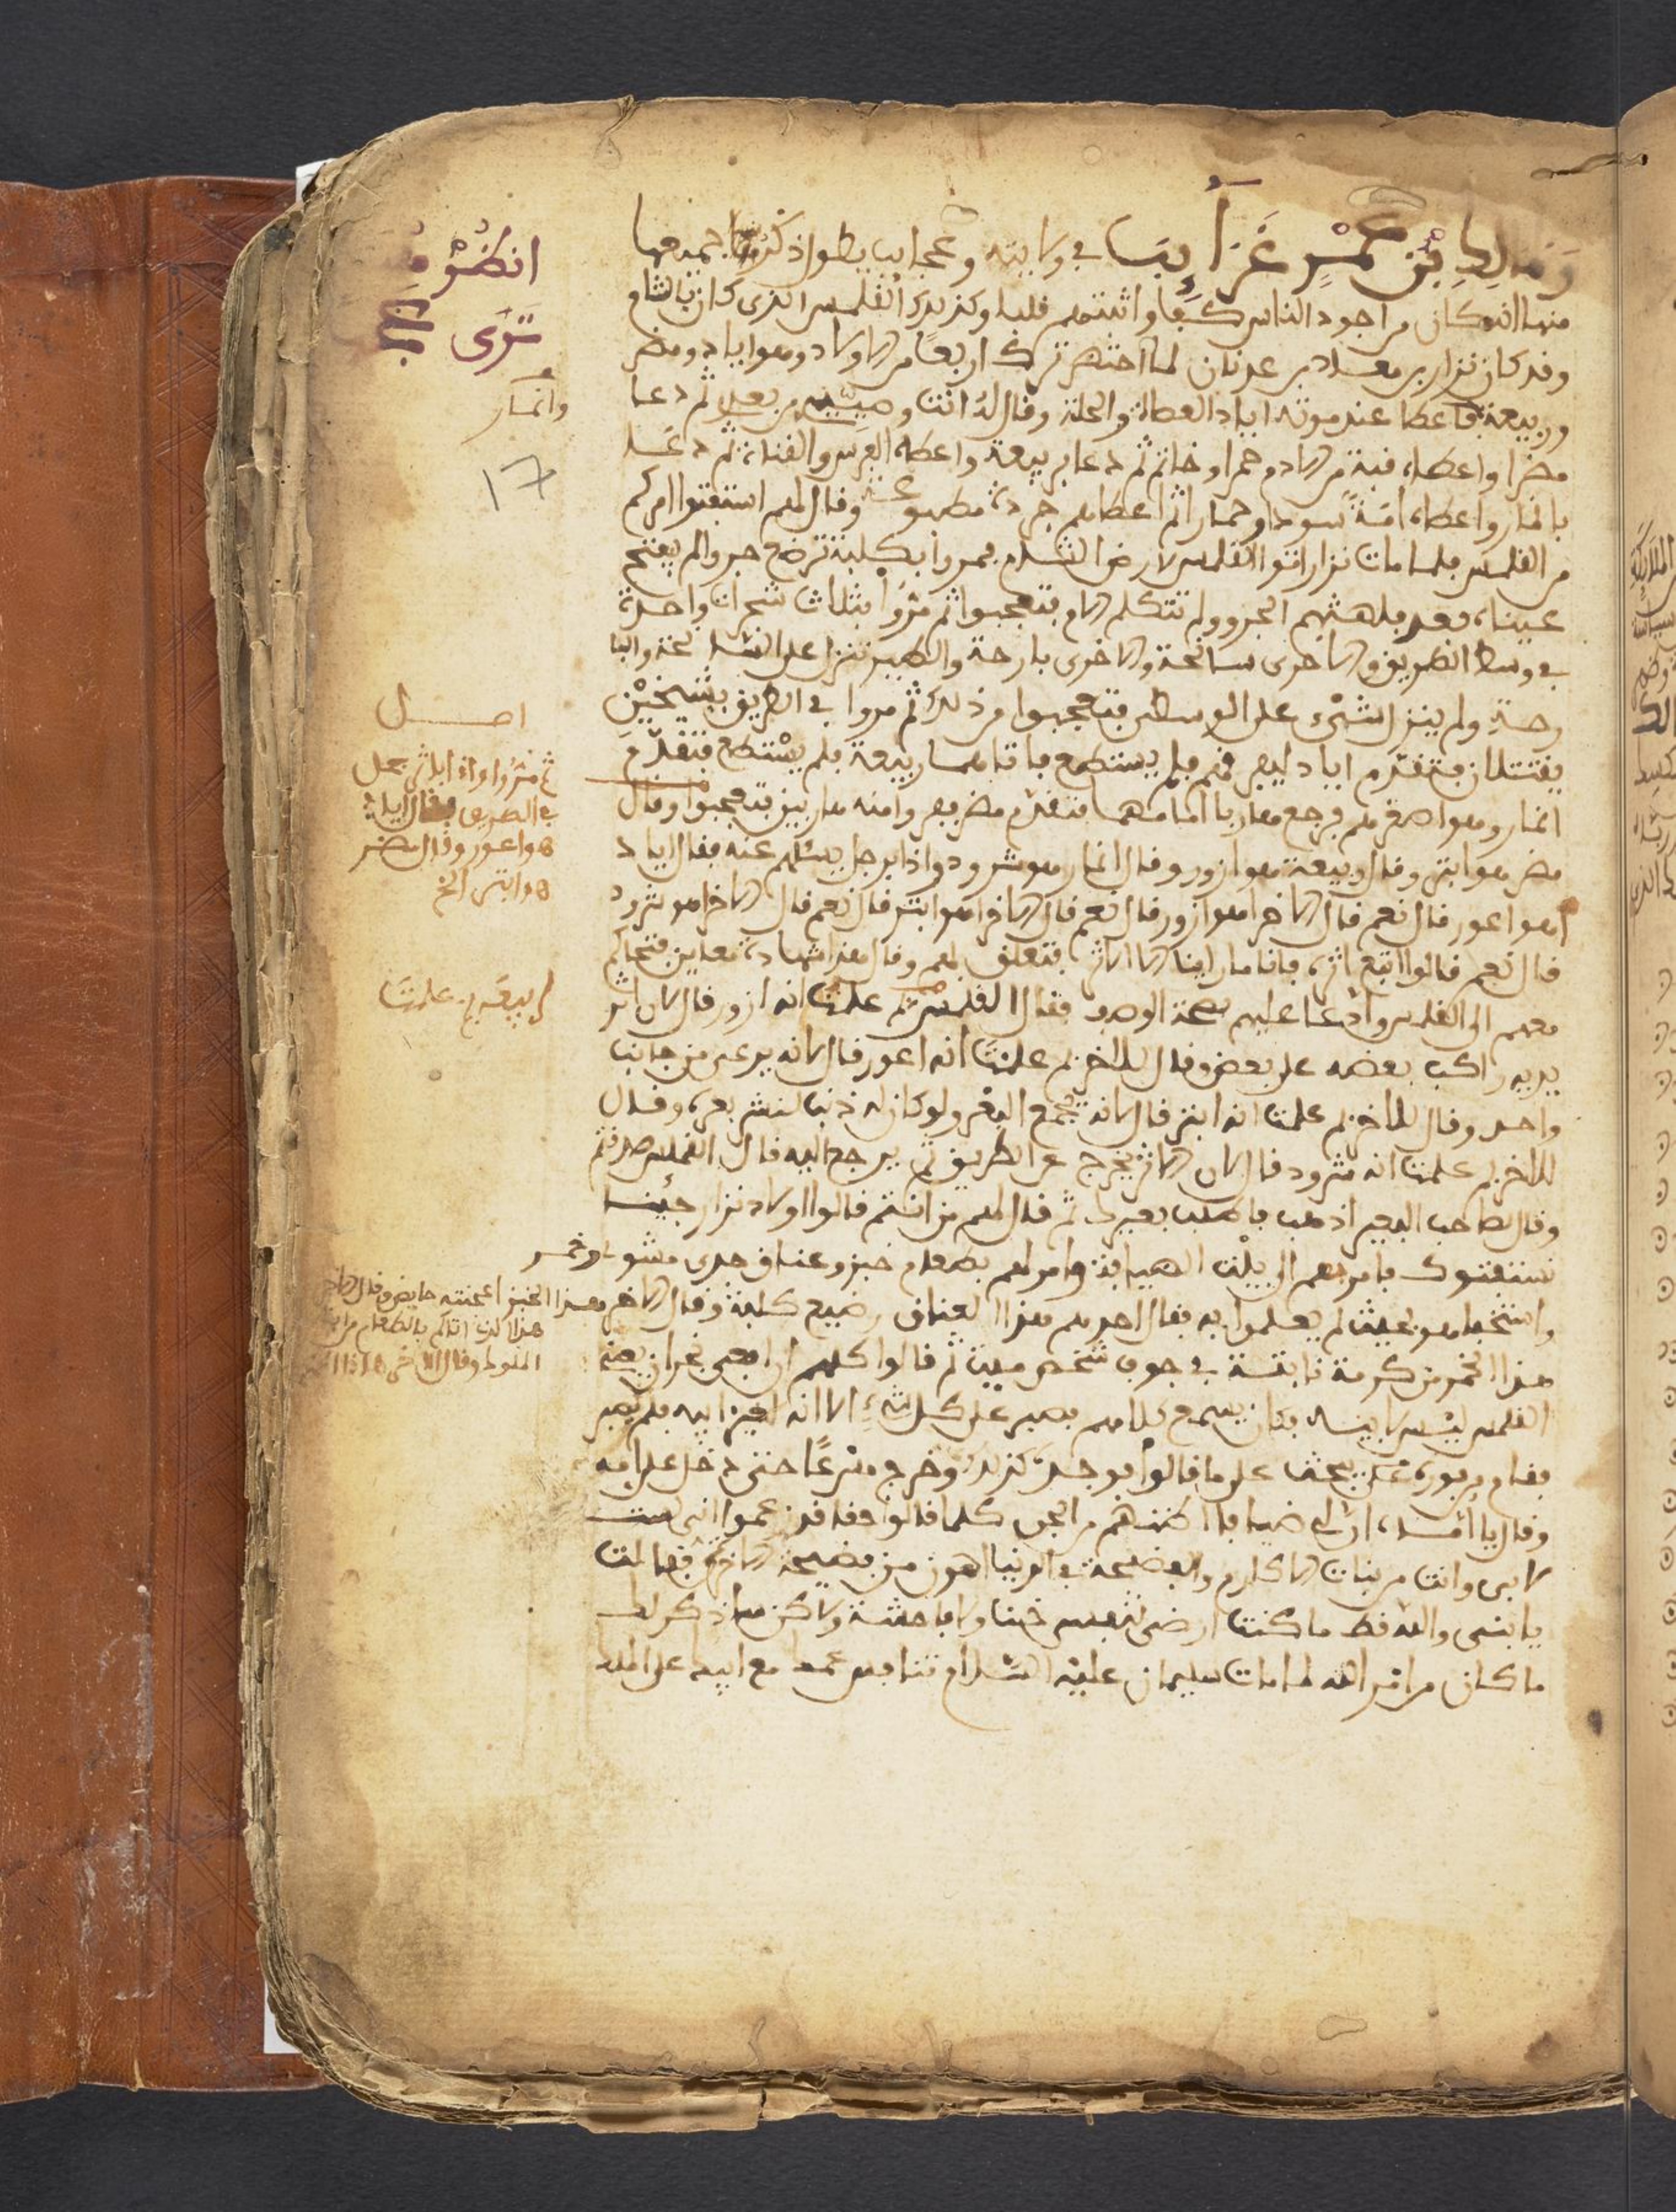 ومالك بن عمر غرايب في ولايته وعجايب يطول ذكرها جميعها
منها انه كان من اجود الناس كفا واثبتهم قلبا وكذلك القلمس الذي كان بالشام
وقد كان نزار بن معد بن عدنان لما احتضر ترك اربعا من الاولاد وهو اياد ومضر
وربيعة فاعطا عند موته اياد العصا والحلة وقال له انت وصيتي من بعدي ثم دعا
مضرا واعطاه قبة من ادم حمرا وخاتم ثم دعا بربيعة واعطاه الفرس والقناة ثم دعا
بانمار واعطاه امة سودا وحمارا ثم اعطاهم جردة مطبوعة وقال لهم استفتوا امركم
من القلمس فلما مات نزار اتوا القلمس لارض الشام فمروا بكلبة ترضع جروا لم يفتح
عيناه بعد فلهثهم الجرو ولم تتكلم الام فتعجبوا ثم مروا بثلاث شجرات واحدة
في وسط الطريق والاخرى سانحة والاخرى بارحة والطير تنزل على السانحة والبا
رحة ولم ينزل شيء على الوسطى فتعجبوا من ذلك ثم مروا في الطريق بشيخين
يقتتلان فتقدم اياد ليصرفهم فلم يستطع فاتاهما ربيعة فلم يستطع فتقدم
انمار وهو اصغرهم فرجع هاربا امامهما فتقدم مضر ففروا منه هاربين فتعجبوا وقال
مضر هو ابتر وقال ربيعة هو ازور وقال انمار هو شرود واذا برجل يسئلهم عنه فقال اياد
اهو اعور قال نعم قال الاخر اهو ازور قال نعم قال الاخر اهو ابتر قال نعم قال الاخر اهو شرود
قال نعم قالوا اتبع اثره فانا ما راينا الا الاثر فتعلق بهم وقال هذا شهادة تعاين فتحاكم
معهم الى القلمس وادعا عليهم بصحة الوصف فقال القلمس بم علمت انه ازور قال لان اثر
يديه راكب بعضه على بعض وقال للاخر بم علمت انه اعور قال لانه يرعى من جانب
واحد وقال للاخر بم علمت انه ابتر قال لانه يجمع البعر ولو كان له ذنب لنشر بعره وقال
للاخر بم علمت انه شرود قال لان الاثر يخرج عن الطريق ثم يرجع اليه قال القلمس صدقتم
وقال لصاحب البعير اذهب فاطلب بعيرك ثم قال لهم من انتم قالوا اولاد نزار جئنا
نستفتوك فامر بهم الى بيت الضيافة وامر لهم بطعام خبز وعناق جدي مشوي وخمر
واستخفا هو بحيث لم يعلموا به فقال احدهم هذا العناق رضيع كلبة وقال الاخر هذا الخبز اعجنته حايض وقال الاخر
هذا الخمر من كرمة نابتة في جوف شخص ميت ثم قالوا كلهم
القلمس ليس لابيه فكان يسمع كلامهم فصبر على كل شيء الا انه لغير ابيه فلم يصبر
فقام من فوره يبحث على ما قالوا فوجد كذلك وخرج مسرعا حتى دخل على امه
وقال يا امه ان لي ضيافا اظنهم من الجن كلما قالوا حقا قد زعموا اني لست
لابي وانت من بنات الاكارم والفضيحة في الدنيا اهون من فضيحة الاخرة فقالت
يا بني والله قط ما كنت ارضى لنفسي خنا ولا فاحشة ولاكن ساذكر لك
ما كان من امر الله لما مات سليمان عليه السلام تنافس عمك مع ابيك على الملك
انظر
سوى
وانمار
١٧
اصل
ثم مروا واذا باثر جمل
في الطريق فقال اياد
هو اعور وقال مضر
هو ابتر الخ
ربيعة بم علمت
هذا الذي اتاكم بالطعام من ابنا
الملوك وقال الاخر هذا